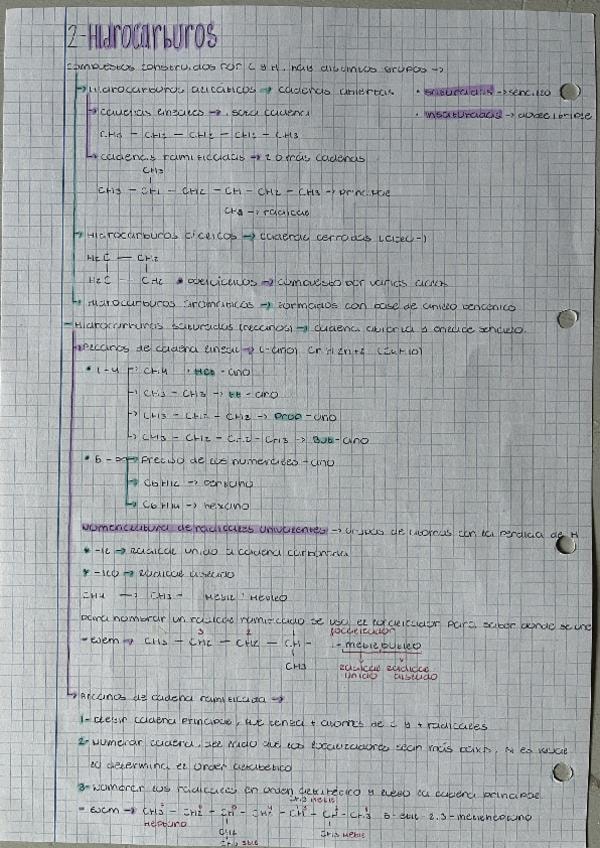 2-HIDROCARBUROS
compuestos construidos por C y H, hay distintos grupos →
→ Hidrocarburos alifáticos → cadenas abiertas • saturadas → sencillo
→ cadenas lineales → 1 sola cadena • insaturadas → doble/triple
CH3 — CH2 — CH2 — CH2 — CH3
→ cadenas ramificadas → 2 o más cadenas
CH3
CH3 — CH — CH2 — CH — CH2 — CH3 → principal
CH3 → radical
→ Hidrocarburos cíclicos → cadenas cerradas (ciclo-)
H2C — CH2
H2C — CH2 • policíclicos → compuesto por varios ciclos
→ Hidrocarburos aromáticos → formados con base de anillo bencénico
- Hidrocarburos saturados (alcanos) → cadena abierta y enlace sencillo
→ Alcanos de cadena lineal → (-ano) CnH2n+2
• 1-4 → CH4 • Met-ano
→ CH3 — CH3 → Et-ano
→ CH3 — CH2 — CH3 → Prop-ano
→ CH3 — CH2 — CH2 — CH3 → But-ano
• 5 - → Prefijo de los numerales -ano
→ C5H12 → pentano
→ C6H14 → hexano
Nomenclatura de radicales univalentes → grupos de átomos con la perdida de H
• -il → radical unido a cadena carbonada
• -ilo → radical aislado
CH4 → CH3 - Metil / Metilo
para nombrar un radical ramificado se usa el localizador para saber donde se une
localizador
- ejem → CH3 — CH2 — CH2 — CH - - metilbutilo
3 2
CH3 radical unido radical aislado
→ Alcanos de cadena ramificada →
1- elegir cadena principal, que tenga + atomos de C y + radicales
2- Numerar cadena, del modo que los localizadores sean más bajos, si es igual
lo determina el orden alfabético
3- Nombrar los radicales en orden alfabético y luego la cadena principal
CH3 metil
- ejem → CH3 — CH2 — CH — CH2 — CH — CH — CH3 5-etil-2,3-metilheptano
heptano CH2 CH3 metil
CH3 etil